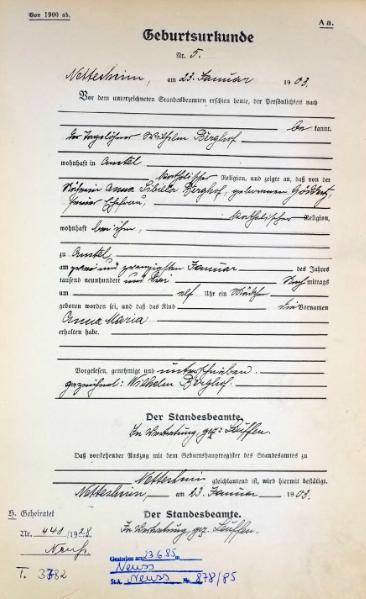 Von 1900 ab.
A a.
Geburtsurkunde
Nr. 5.
Nettersheim, am 23. Januar 1903.
Vor dem unterzeichneten Standesbeamten erschien heute, der Persönlichkeit nach
be kannt,
der Tagelöhner Wilhelm Berghof
wohnhaft in
katholischer Religion, und zeigte an, daß von der
Anna Sibilla Berghof, geborenen
seiner Ehefrau,
katholischer Religion,
wohnhaft bei ihm,
zu
am zwei und zwanzigsten Januar des Jahres
tausend neunhundert und drei Nach mittags
um elf Uhr ein Mädchen
geboren worden sei, und daß das Kind die Vornamen
Anna Maria
erhalten habe.
Vorgelesen, genehmigt und unterschrieben.
gezeichnet: Wilhelm Berghof.
Der Standesbeamte.
In Vertretung gez:
Daß vorstehender Auszug mit dem Geburtshauptregister des Standesamts zu
Nettersheim gleichlautend ist, wird hiermit bestätigt.
Nettersheim, am 23. Januar 1903.
Der Standesbeamte.
In Vertretung gez.
H. Geheiratet
Nr. 441/1928
Neuß
T. 3782
Gestorben am 23.6.85 in
Neuss
StA. Neuss Nr. 878/85